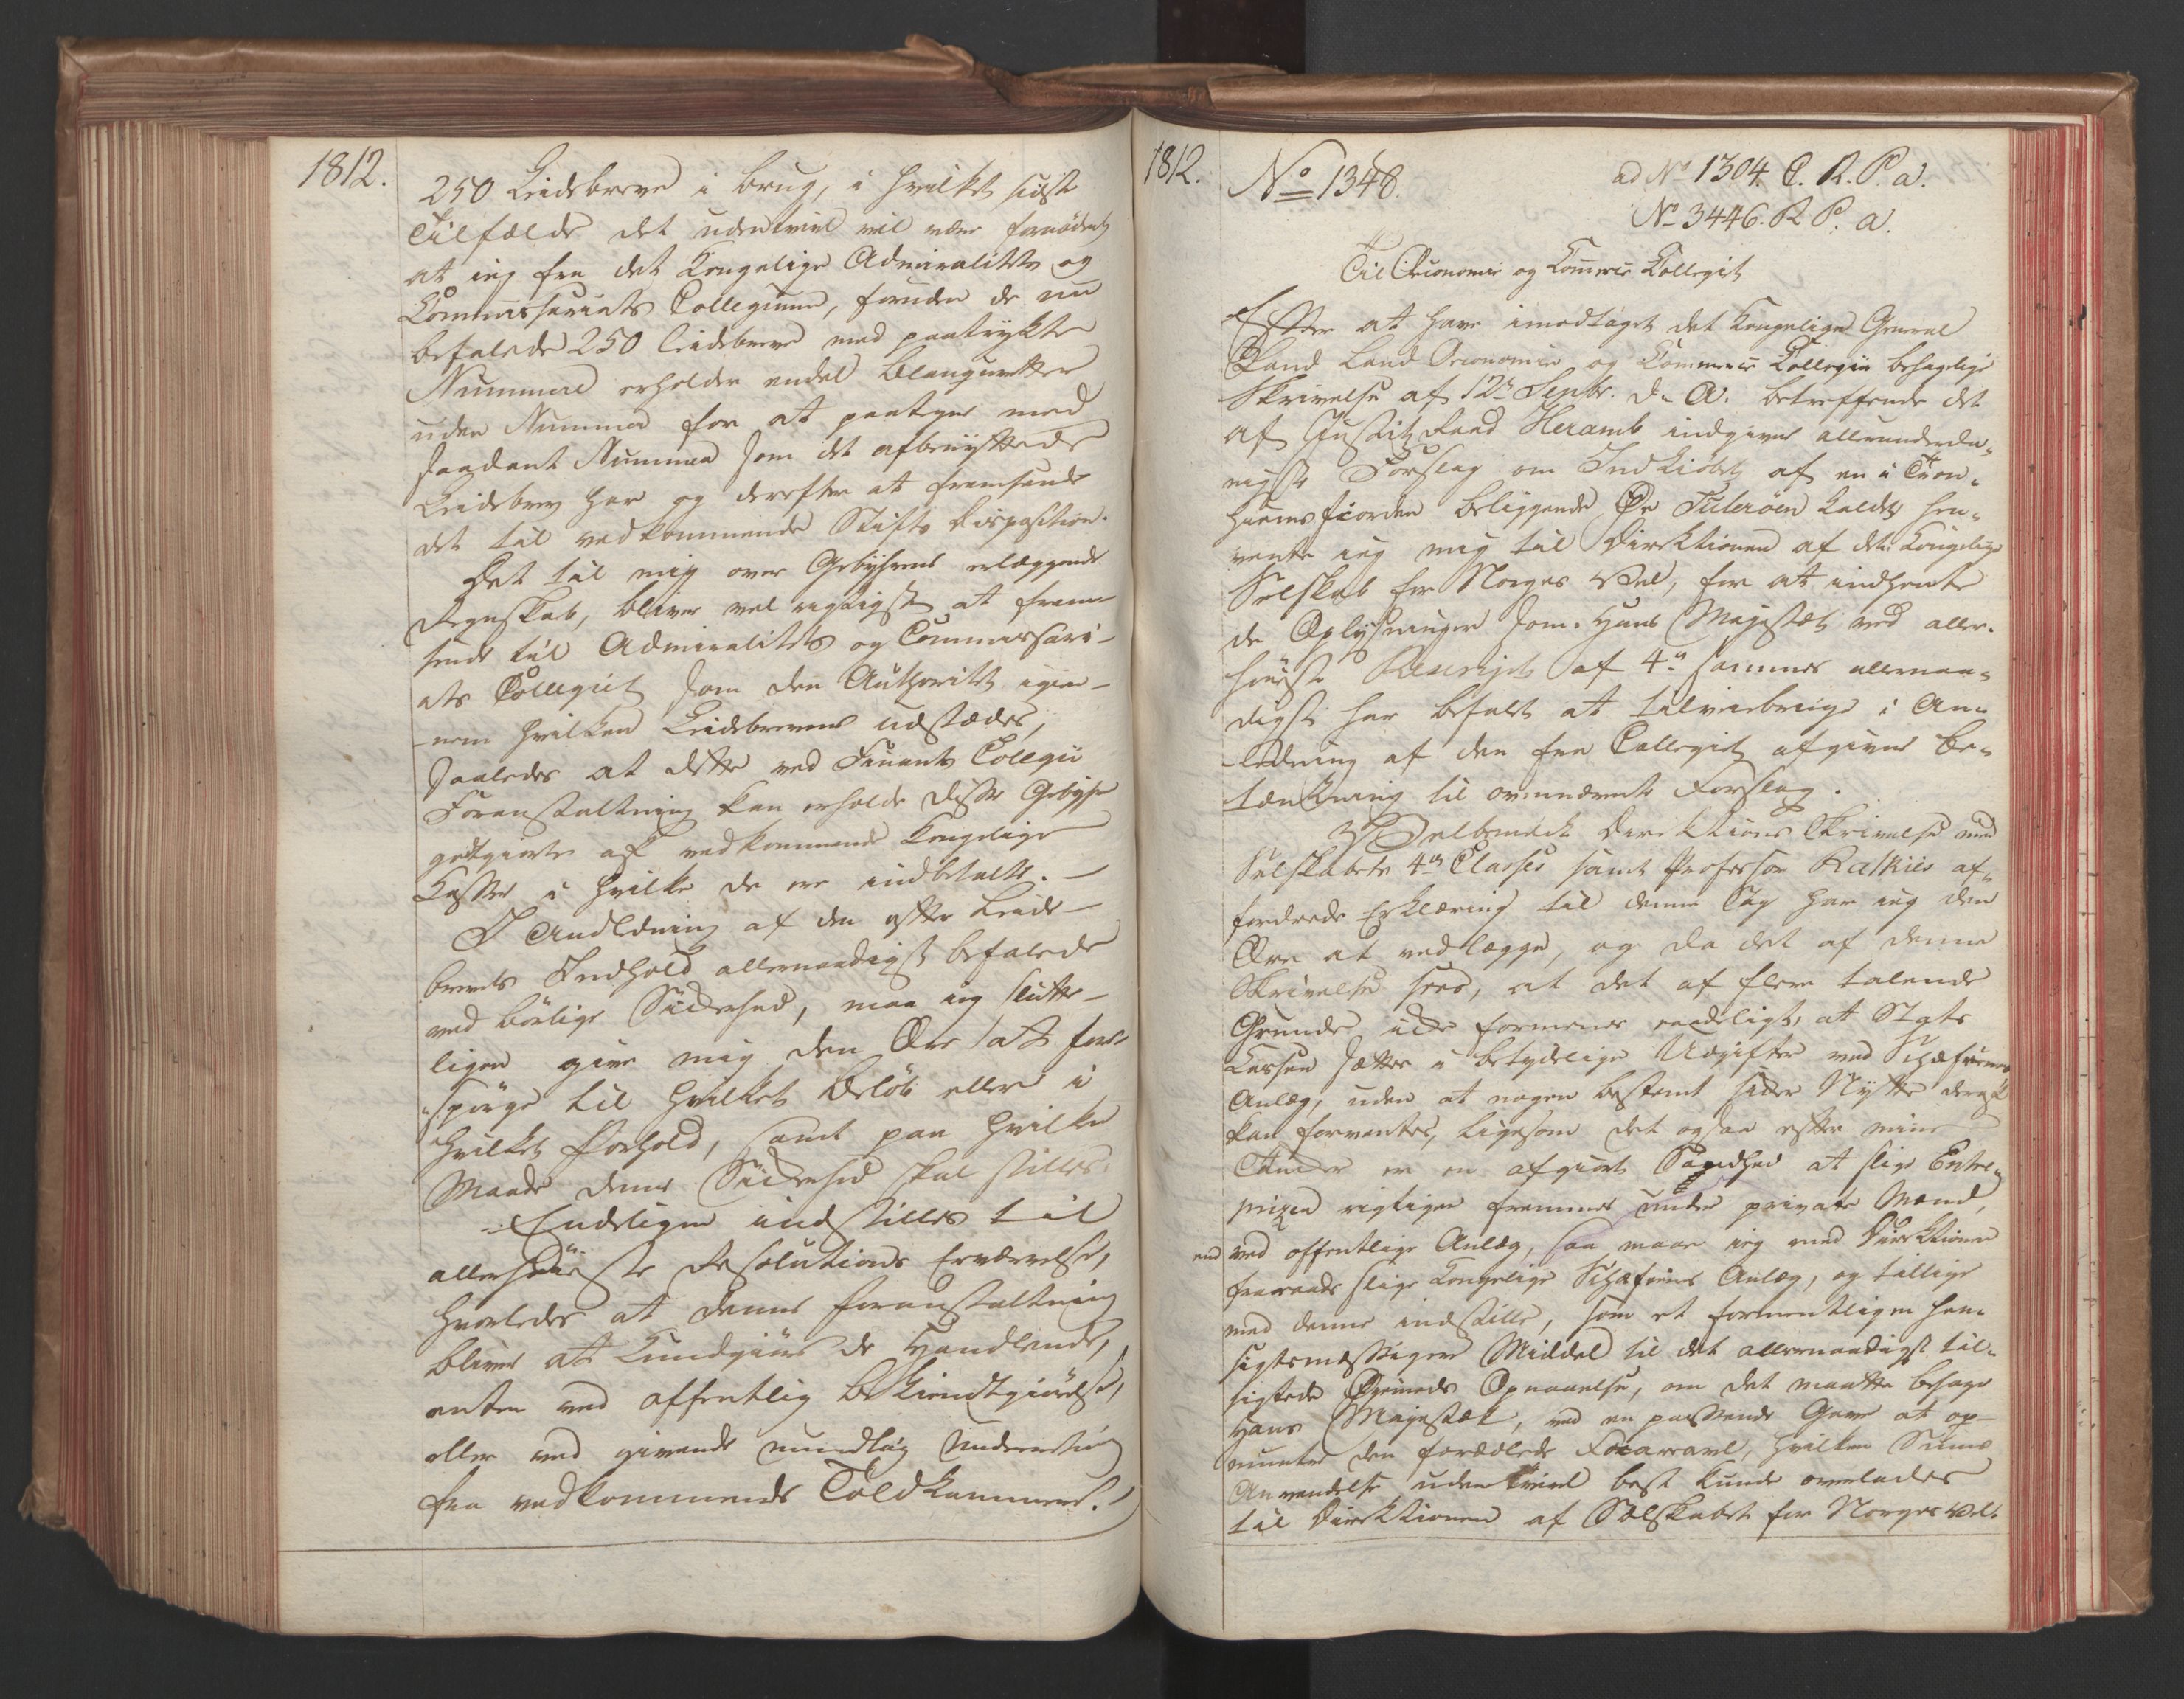 1812.
250 Leidebreve i Brug, i hvilket sidste
Tilfælde det udentvivl vil være fornødent
at jeg fra det Kongelige Admiralitets og
Commissariats Collegium, foruden de nu
befalede 250 Leidebreve med paatrykte
Nummere erholder endel Blanquetter
uden Nummer for at paategne med
saadant Nummer som det afbenyttede
Leidebrev har og derefter at fremsende
det til vedkommende Stifts Disposition.
Det til mig over Gebyhrene erlæggende
Regnskab, bliver vel rigtigst at frem-
sende til Admiralitets og Commissari-
ats Collegiet som den Authoritet igien-
nem hvilken Leidebrevene udstædes,
saaledes at dette ved Finants Collegii
Foranstaltning kan erholde disse Gebyhr
godtgiorte af vedkommende Kongelige
Kasser i hvilke de ere indbetalte. -
I Andledning af den efter Leide-
brevets Indhold allernaadigst befalede
ved børlige Sikkerhed, maa jeg slutte-
ligen give mig den Ære at fore-
spørge til hvilket Beløb eller i
hvilket Forhold, samt paa hvilken
Maade denne Sikkerhed skal stilles.
Endeligen indstilles til
allerhøieste Resolutions Erværvelse,
hvorledes at denne Foranstaltning
bliver at kundgiøre de Handlende,
enten ved offentlig Bekiendtgiørelse,
eller ved givende mundtlig Underretning
fra vedkommende Toldkammere.
1812.
No 1348.
ad No 1304. C. R. P. a.
No 3446. R P. a.
Til Oeconomie og Commerce Collegiet
Efter at have imodtaget det Kongelige General
Land Oeconomie og Commerce Collegii behagelige
Skrivelse af 12te Septbr. d. A. betreffende det
af Justitzraad Heramb indgivne allerunderda-
nigste Forslag om Indkiøbet af en i Tron-
hiems Fiorden beliggende Øe Tuterøen kaldet hen-
vendte jeg mig til Direktionen af det Kongelige
Selskab for Norges Vel, for at indhente
de Oplysninger som Hans Majestæt ved aller-
høieste Rescript af 4de sammes allernaa-
digst har befalet at tilveiebringe i An-
ledning af den fra Collegiet afgivne Be-
tænkning til ovennævnte Forslag.
Velbemeldte Direktions Skrivelse med
Selskabets 4de Classes samt Professor Rathkes af-
fordrede Erklæring til denne Sag har jeg den
Ære at vedlægge, og da det af denne
Skrivelse sees, at det af flere talende
Grunde ikke formenes raadeligt, at Stats
Kassen sætter i betydelige Udgifter ved Schæferie
Anlæg, uden at nogen bestemt sikker Nytte deraf
kan forventes, ligesom det ogsaa efter mine
Tanker er en afgiort Sandhed at slige Entre-
prizer rigtigere fremmes under private Mænd,
end ved offentlige Anlæg, saa maae jeg med Direktionen
fraraade slige Kongelige Schæferie Anlæg, og tillige
med denne indstille, som et formentligen hen-
sigtsmæssigere Middel til det allernaadigst til-
sigtede Øiemeds Opnaaelse, om det maatte behage
Hans Majestæt, ved en passende Gave at op-
muntre den forædlede Faareavl, hvilken Sums
Anvendelse udentvivl best kunde overlades
til Direktionen af Selskabet for Norges Vel.